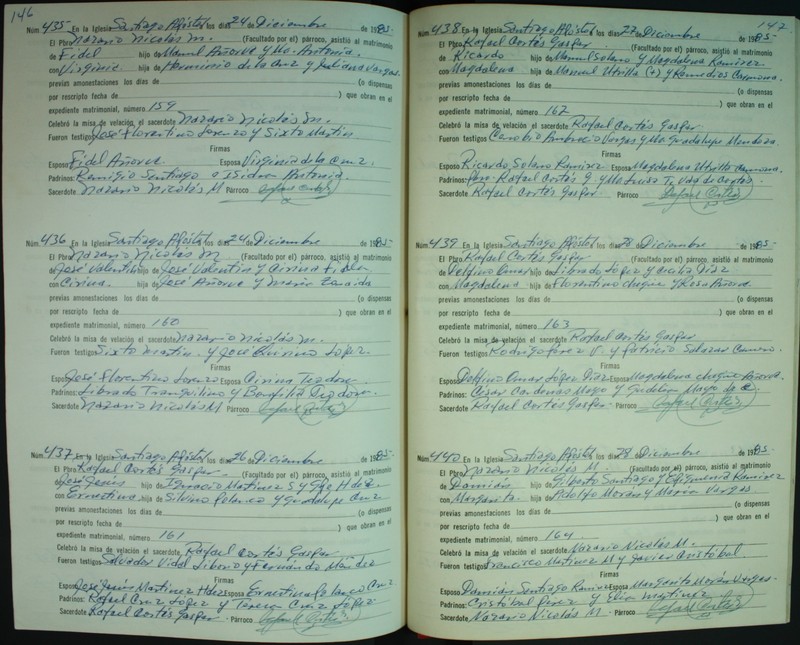 146
Núm. 435 En la Iglesia Santiago Apóstol los días 24 de Diciembre de 1985-
El Pbro Nazario Nicolás M. (Facultado por el) párroco, asistió al matrimonio
de Fidel hijo de Manuel Añorve y Ma. Antonia
con Virginia hija de Herminio de la Cruz y Juliana Vargas
previas amonestaciones los días de (o dispensas
por rescripto fecha de ) que obran en el
expediente matrimonial, número 159
Celebró la misa de velación el sacerdote Nazario Nicolás M.
Fueron testigos José Florentino Lorenzo y Sixto Martin
Firmas
Esposo Fidel Añorve Esposa Virginia de la Cruz.
Padrinos: Remigio Santiago e Isidra Antonia
Sacerdote Nazario Nicolás M Párroco Rafael Cortés
Núm. 436 En la Iglesia Santiago Apóstol los días 24 de Diciembre de 1985-
El Pbro Nazario Nicolás M (Facultado por el) párroco, asistió al matrimonio
de José Valentin hijo de José Valentin y
con Cirina. hija de José Añorve y Maria
previas amonestaciones los días de (o dispensas
por rescripto fecha de ) que obran en el
expediente matrimonial, número 160
Celebró la misa de velación el sacerdote Nazario Nicolás M.
Fueron testigos Sixto Martin y José López.
Firmas
Esposo José Florentino Lorenzo Esposa Cirina
Padrinos: Librado Tranquilino y
Sacerdote Nazario Nicolás M Párroco Rafael Cortés
Núm. 437 En la Iglesia Santiago Apóstol los días 26 de Diciembre de 1985-
El Pbro Rafael Cortés Gasper (Facultado por el) párroco, asistió al matrimonio
de José Jesús hijo de Ignacio Martinez S y Hdez.
con Ernestina hija de Silvino Polanco y Guadalupe Cruz
previas amonestaciones los días de (o dispensas
por rescripto fecha de ) que obran en el
expediente matrimonial, número 161
Celebró la misa de velación el sacerdote Rafael Cortés Gasper
Fueron testigos Salvador Vidal Liborio y Fernando Méndez
Firmas
Esposo José Jesús Martinez Hdez Esposa Ernestina Polanco Cruz
Padrinos: Rafael Cruz López y Teresa Cruz López
Sacerdote Rafael Cortés Gasper Párroco Rafael Cortés
147
Núm. 438 En la Iglesia Santiago Apóstol los días 27 de Diciembre de 1985-
El Pbro Rafael Cortés Gasper (Facultado por el) párroco, asistió al matrimonio
de Ricardo hijo de Manuel Solano y Magdalena Ramirez
con Magdalena hija de Manuel Utrilla (+) y Remedios Carmona.
previas amonestaciones los días de (o dispensas
por rescripto fecha de ) que obran en el
expediente matrimonial, número 162
Celebró la misa de velación el sacerdote Rafael Cortés Gasper
Fueron testigos Cenobio Ambrocio Vargas y Ma Guadalupe Mendoza
Firmas
Esposo Ricardo Solano Ramirez Esposa Magdalena Utrilla Carmona.
Padrinos: Pbro. Rafael Cortés G y Ma Luisa T. Vda de Cortés
Sacerdote Rafael Cortés Gasper Párroco Rafael Cortés
Núm. 439 En la Iglesia Santiago Apóstol los días 28 de Diciembre de 1985-
El Pbro Rafael Cortés Gasper (Facultado por el) párroco, asistió al matrimonio
de Delfino Omar hijo de Librado López y Diaz
con Magdalena hija de Florentino y Rosa Añorve
previas amonestaciones los días de (o dispensas
por rescripto fecha de ) que obran en el
expediente matrimonial, número 163
Celebró la misa de velación el sacerdote Rafael Cortés Gasper
Fueron testigos Rodrigo Perez V. y Patricio Salazar
Firmas
Esposo Delfino Omar López Diaz Esposa Magdalena Añorve.
Padrinos: César Cardenas Moyo y
Sacerdote Rafael Cortés Gasper Párroco Rafael Cortés
Núm. 440 En la Iglesia Santiago Apóstol los días 28 de Diciembre de 1985-
El Pbro Nazario Nicolás M. (Facultado por el) párroco, asistió al matrimonio
de Damián hijo de Gilberto Santiago y Efigenia Ramirez
con Margarita. hija de Adolfo Moran y Maria Vargas
previas amonestaciones los días de (o dispensas
por rescripto fecha de ) que obran en el
expediente matrimonial, número 164
Celebró la misa de velación el sacerdote Nazario Nicolás M.
Fueron testigos Francisco Martinez M y Javier Cristóbal
Firmas
Esposo Damián Santiago Ramirez Esposa Margarita Morán Vargas-
Padrinos: Cristóbal Perez y Elia Martinez
Sacerdote Nazario Nicolás M Párroco Rafael Cortés